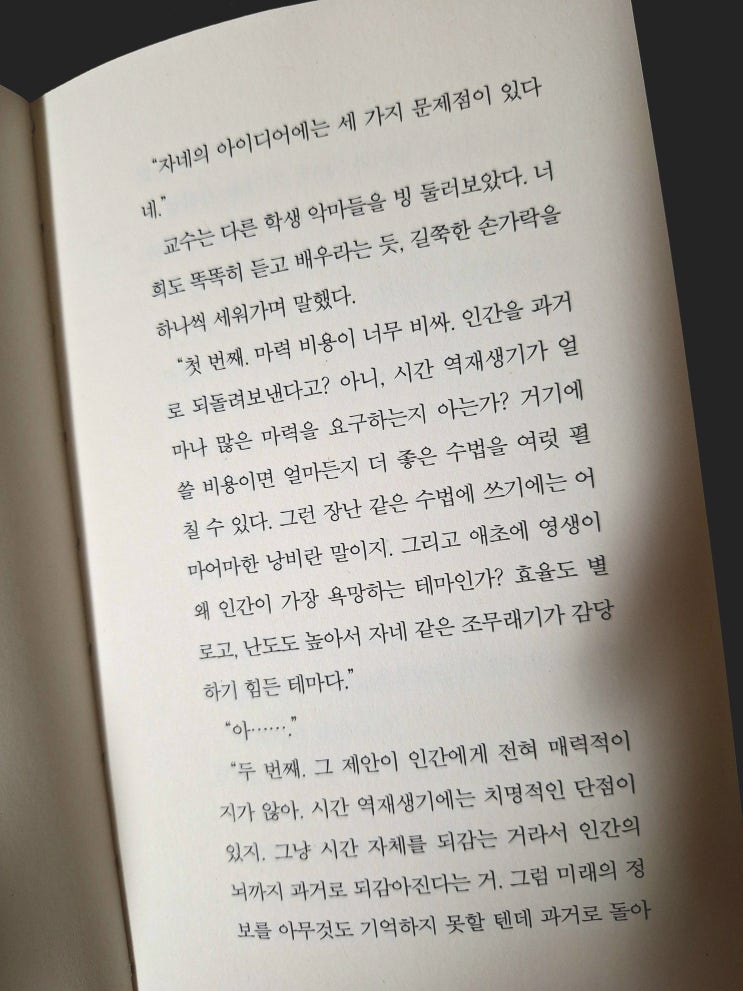 “자네의 아이디어에는 세 가지 문제점이 있다
네.”
교수는 다른 학생 악마들을 빙 둘러보았다. 너
희도 똑똑히 듣고 배우라는 듯, 길쭉한 손가락을
하나씩 세워가며 말했다.
“첫 번째. 마력 비용이 너무 비싸. 인간을 과거
로 되돌려보낸다고? 아니, 시간 역재생기가 얼
마나 많은 마력을 요구하는지 아는가? 거기에
쓸 비용이면 얼마든지 더 좋은 수법을 여럿 펼
칠 수 있다. 그런 장난 같은 수법에 쓰기에는 어
마어마한 낭비란 말이지. 그리고 애초에 영생이
왜 인간이 가장 욕망하는 테마인가? 효율도 별
로고, 난도도 높아서 자네 같은 조무래기가 감당
하기 힘든 테마다.”
“아…….”
“두 번째. 그 제안이 인간에게 전혀 매력적이
지가 않아. 시간 역재생기에는 치명적인 단점이
있지. 그냥 시간 자체를 되감는 거라서 인간의
뇌까지 과거로 되감아진다는 거. 그럼 미래의 정
보를 아무것도 기억하지 못할 텐데 과거로 돌아